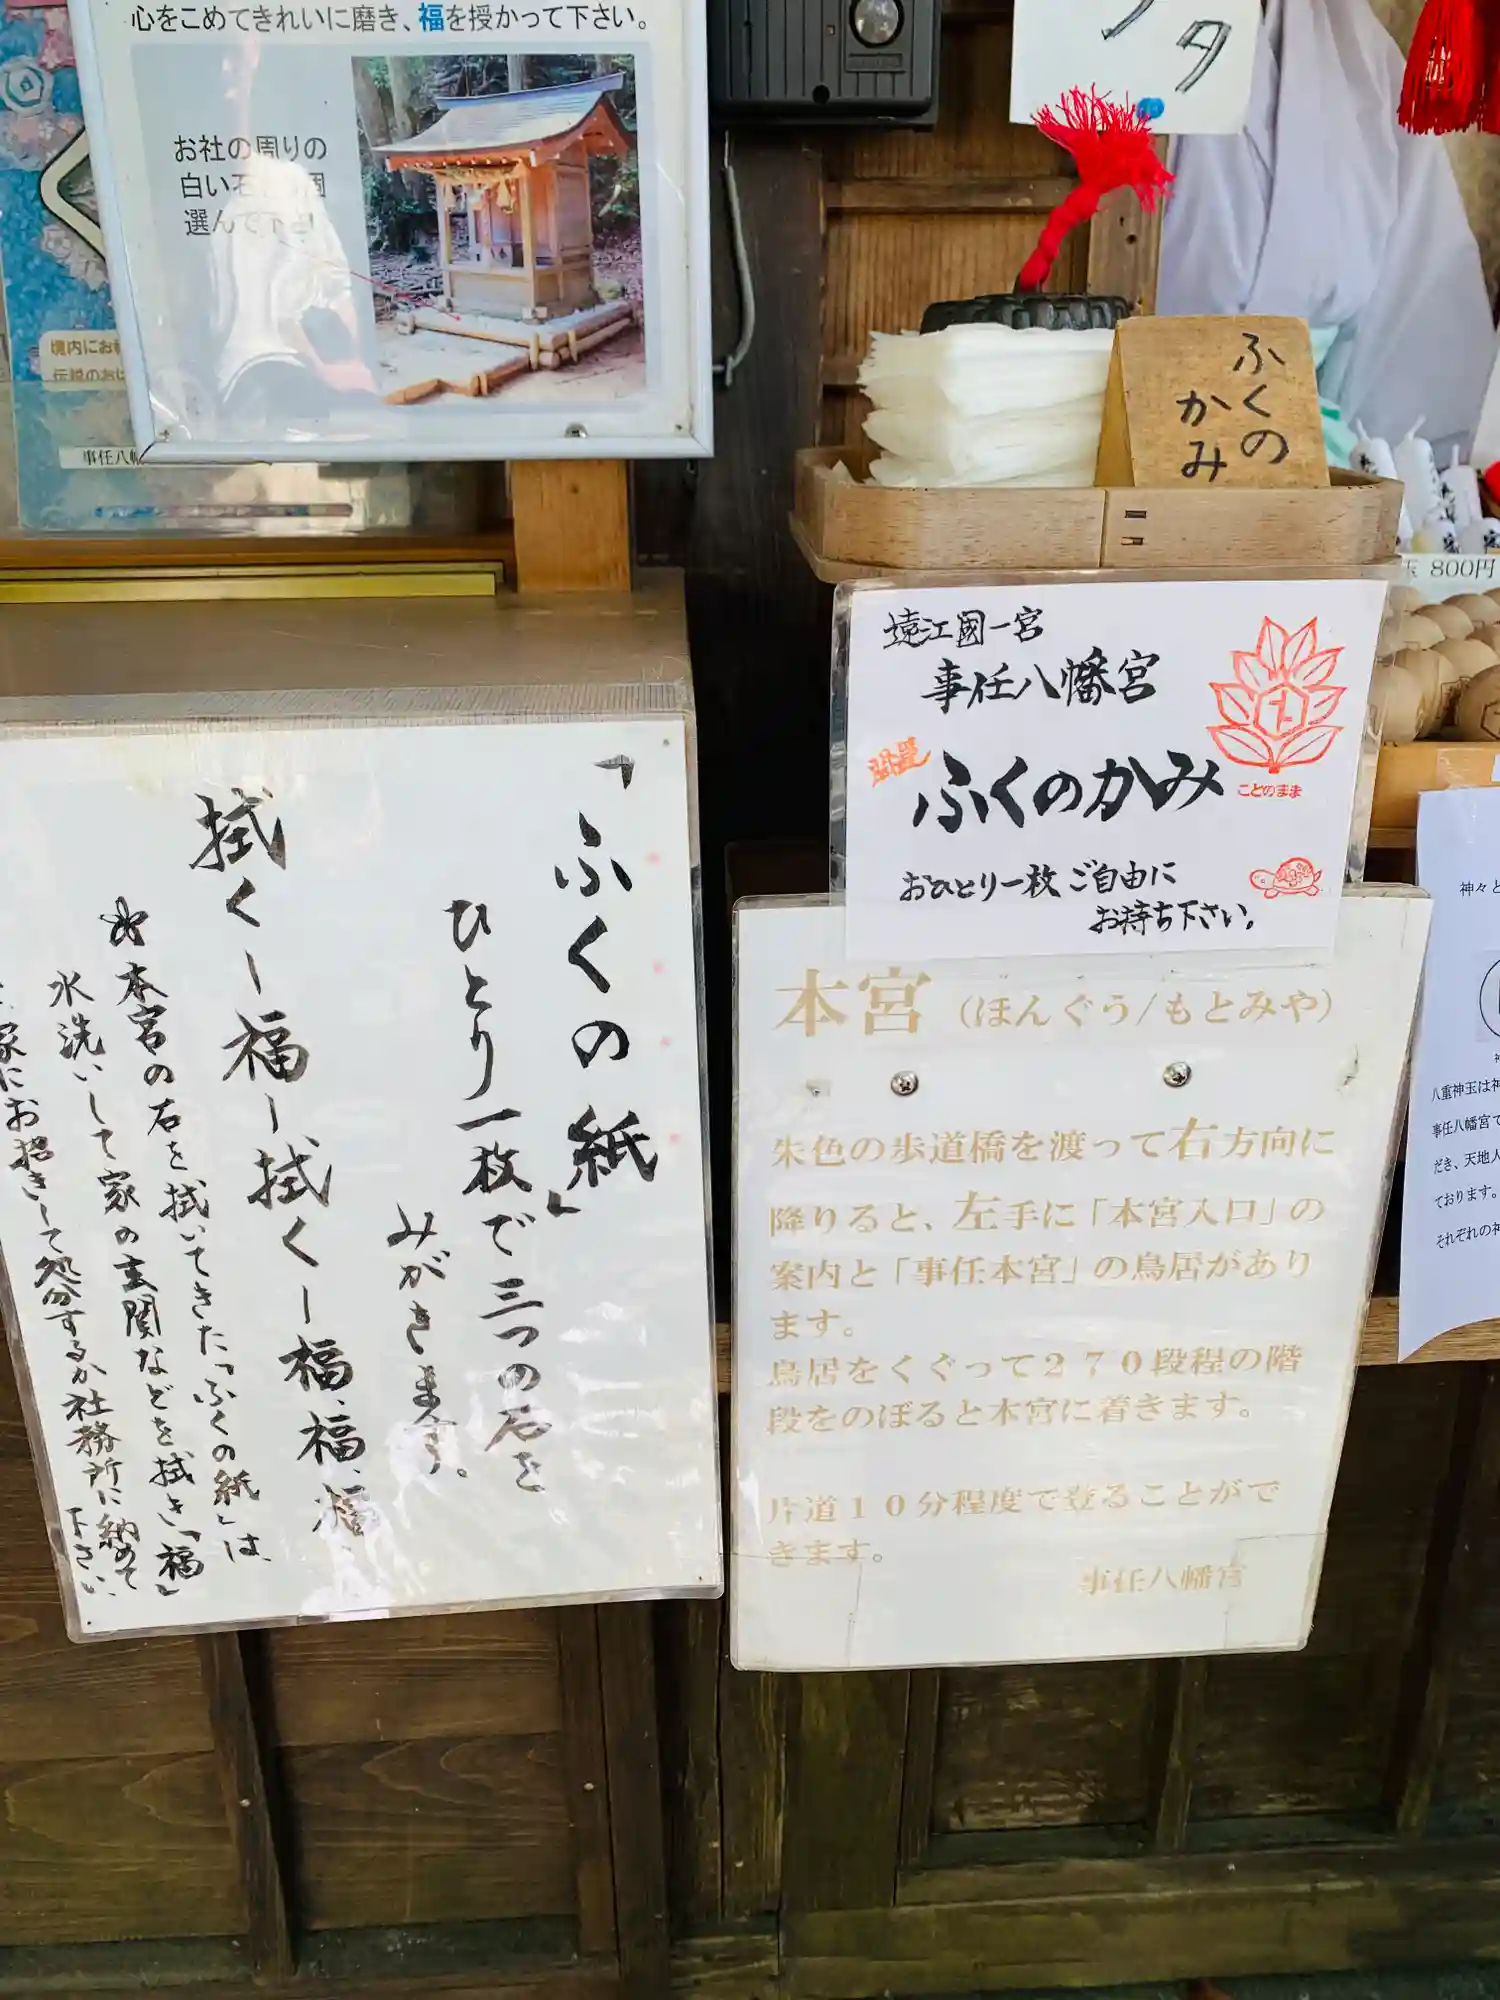 心をこめてきれいに磨き、福を授かって下さい。
お社の周りの
白い石
選んで下さい
境内にお
伝説のお
事任八幡
タ
ふくの
かみ
800円
遠江國一宮
事任八幡宮
ふくのかみ
ことのまま
おひとり一枚ご自由に
お持ち下さい。
「ふくの紙」
ひとり一枚で三つの石を
みがきます。
拭くー福ー拭くー福、福、福、
本宮の石を拭いてきた「ふくの紙」は、
水洗いして家の玄関などを拭き「福」
家にお招きして処分するか社務所に納めて
下さい。
本宮（ほんぐう/もとみや）
朱色の歩道橋を渡って右方向に
降りると、左手に「本宮入口」の
案内と「事任本宮」の鳥居があり
ます。
鳥居をくぐって２７０段程の階
段をのぼると本宮に着きます。
片道１０分程度で登ることがで
きます。
事任八幡宮
神々と
八重神玉は神
事任八幡宮で
だき、天地人
ております。
それぞれの神